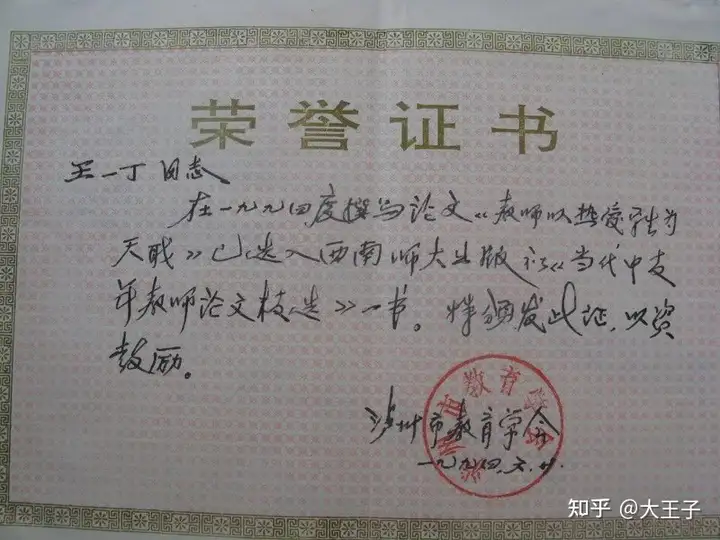 荣誉证书
王一丁同志
在一九九四度撰写论文《教师以热爱学生为
天职》已选入西南师大出版社《当代中青
年教师论文精选》一书。特颁发此证，以资
鼓励。
泸州市教育学会
一九九四.六.廿.
知乎 @大王子